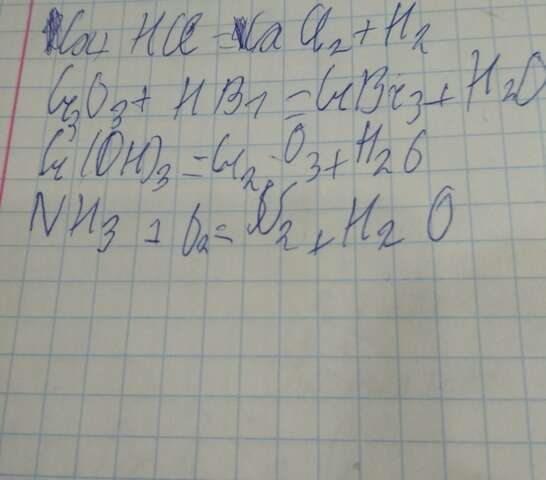 Na + HCl = Na Cl2 + H2
Cr2O3 + HBr = CrBr3 + H2O
Cr(OH)3 = Cr2 O3 + H2O
NH3 + O2 = N2 + H2 O